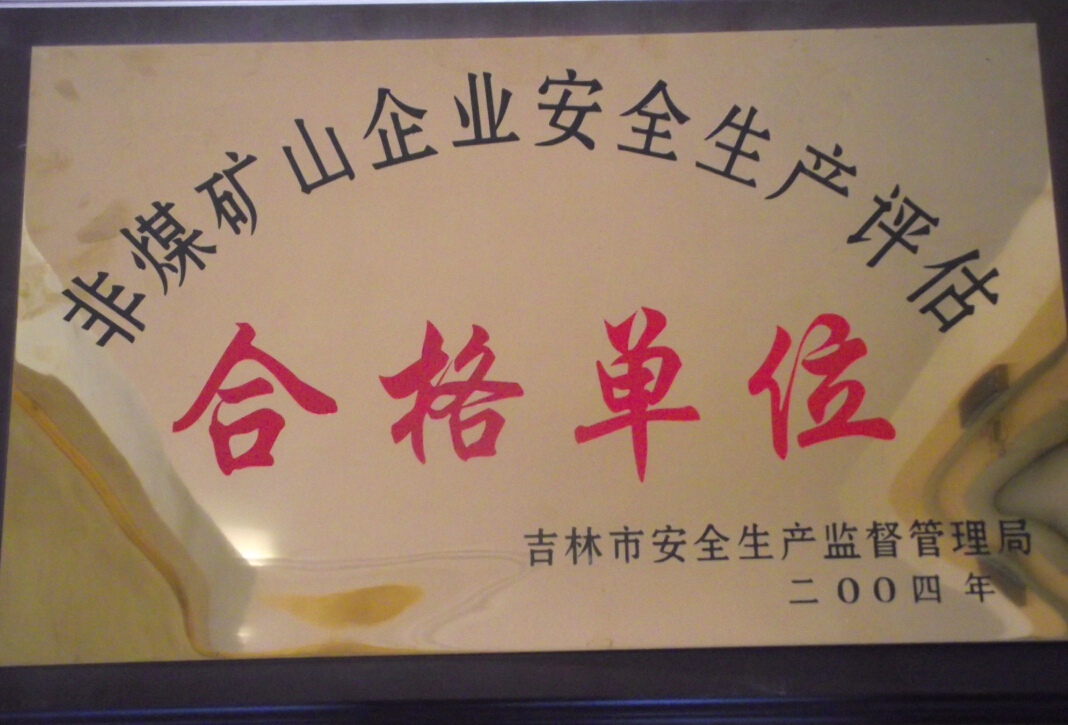 非煤矿山企业安全生产评估
合格单位
吉林市安全生产监督管理局
二00四年